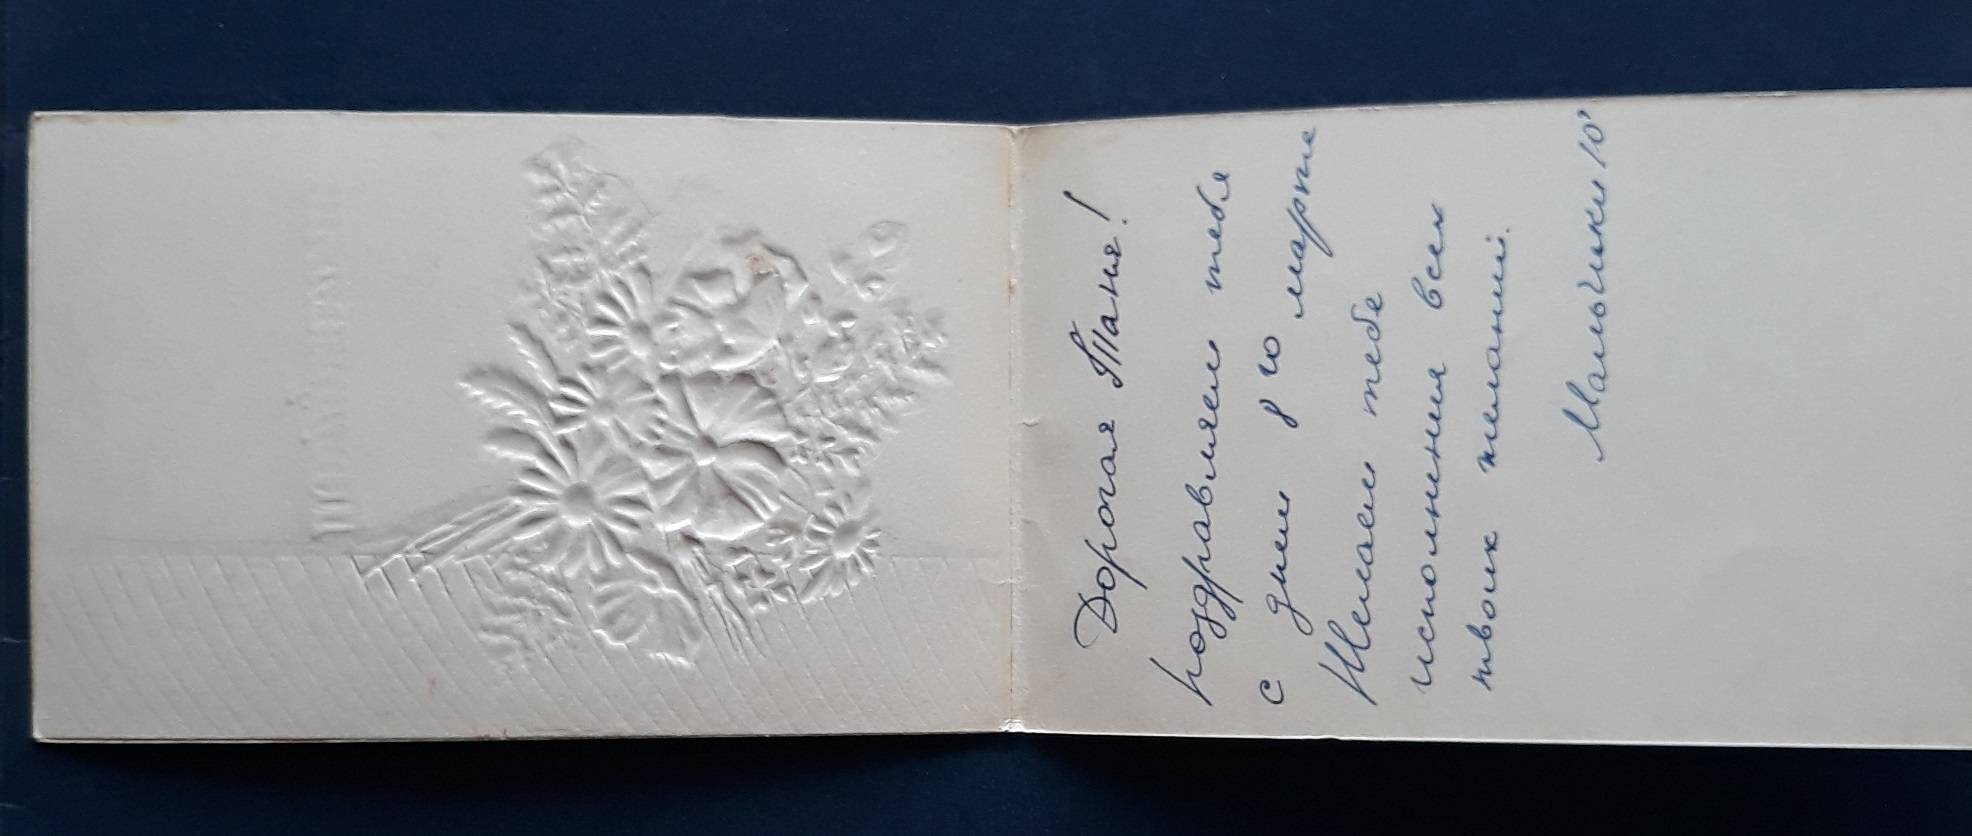 Дорогая Таня!
поздравляем тебя
с днем 8го марта
Желаем тебе
исполнения всех
твоих желаний.
Мальчики 10"